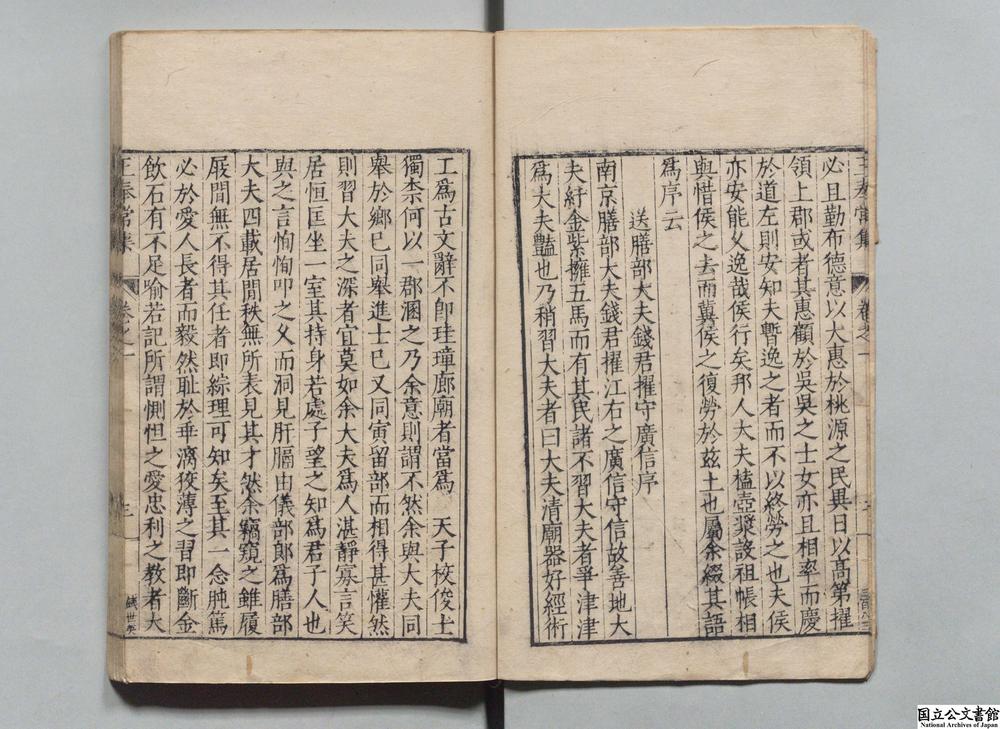 必且勤布德意以大惠於桃源之民異日以高第擢
領上郡或者其惠顧於吳吳之士女亦且相率而慶
於道左則安知夫暫逸之者而不以終勞之也夫侯
亦安能乆逸哉侯行矣邦人大夫榼壺漿設祖帳相
與惜侯之去而冀侯之復勞於兹土也屬余綴其語
爲序云
送膳部大夫錢君擢守廣信序
南京膳部大夫錢君擢江右之廣信守信故善地大
夫紆金紫擁五馬而有其民諸不習大夫者爭津津
爲大夫豔也乃稍習大夫者曰大夫清廟器好經術
工爲古文辭不卽珪璋廊廟者當爲 天子校俊士
獨柰何以一郡溷之乃余意則謂不然余與大夫同
舉於鄉已同舉進士已又同寅留部而相得甚懽然
則習大夫之深者宜莫如余大夫爲人湛靜寡言笑
居恒匡坐一室其持身若處子望之知爲君子人也
與之言恂恂叩之乆而洞見肝膈由儀部郎爲膳部
大夫四載居閒秩無所表見其才然余竊窺之雖履
屐間無不得其任者卽綜理可知矣至其一念肫篤
必於愛人長者而毅然恥於乖漓狡薄之習卽斷金
飲石有不足喻若記所謂惻怛之愛忠利之教者大
王奉常集 卷之一 三
国立公文書館
National Archives of Japan